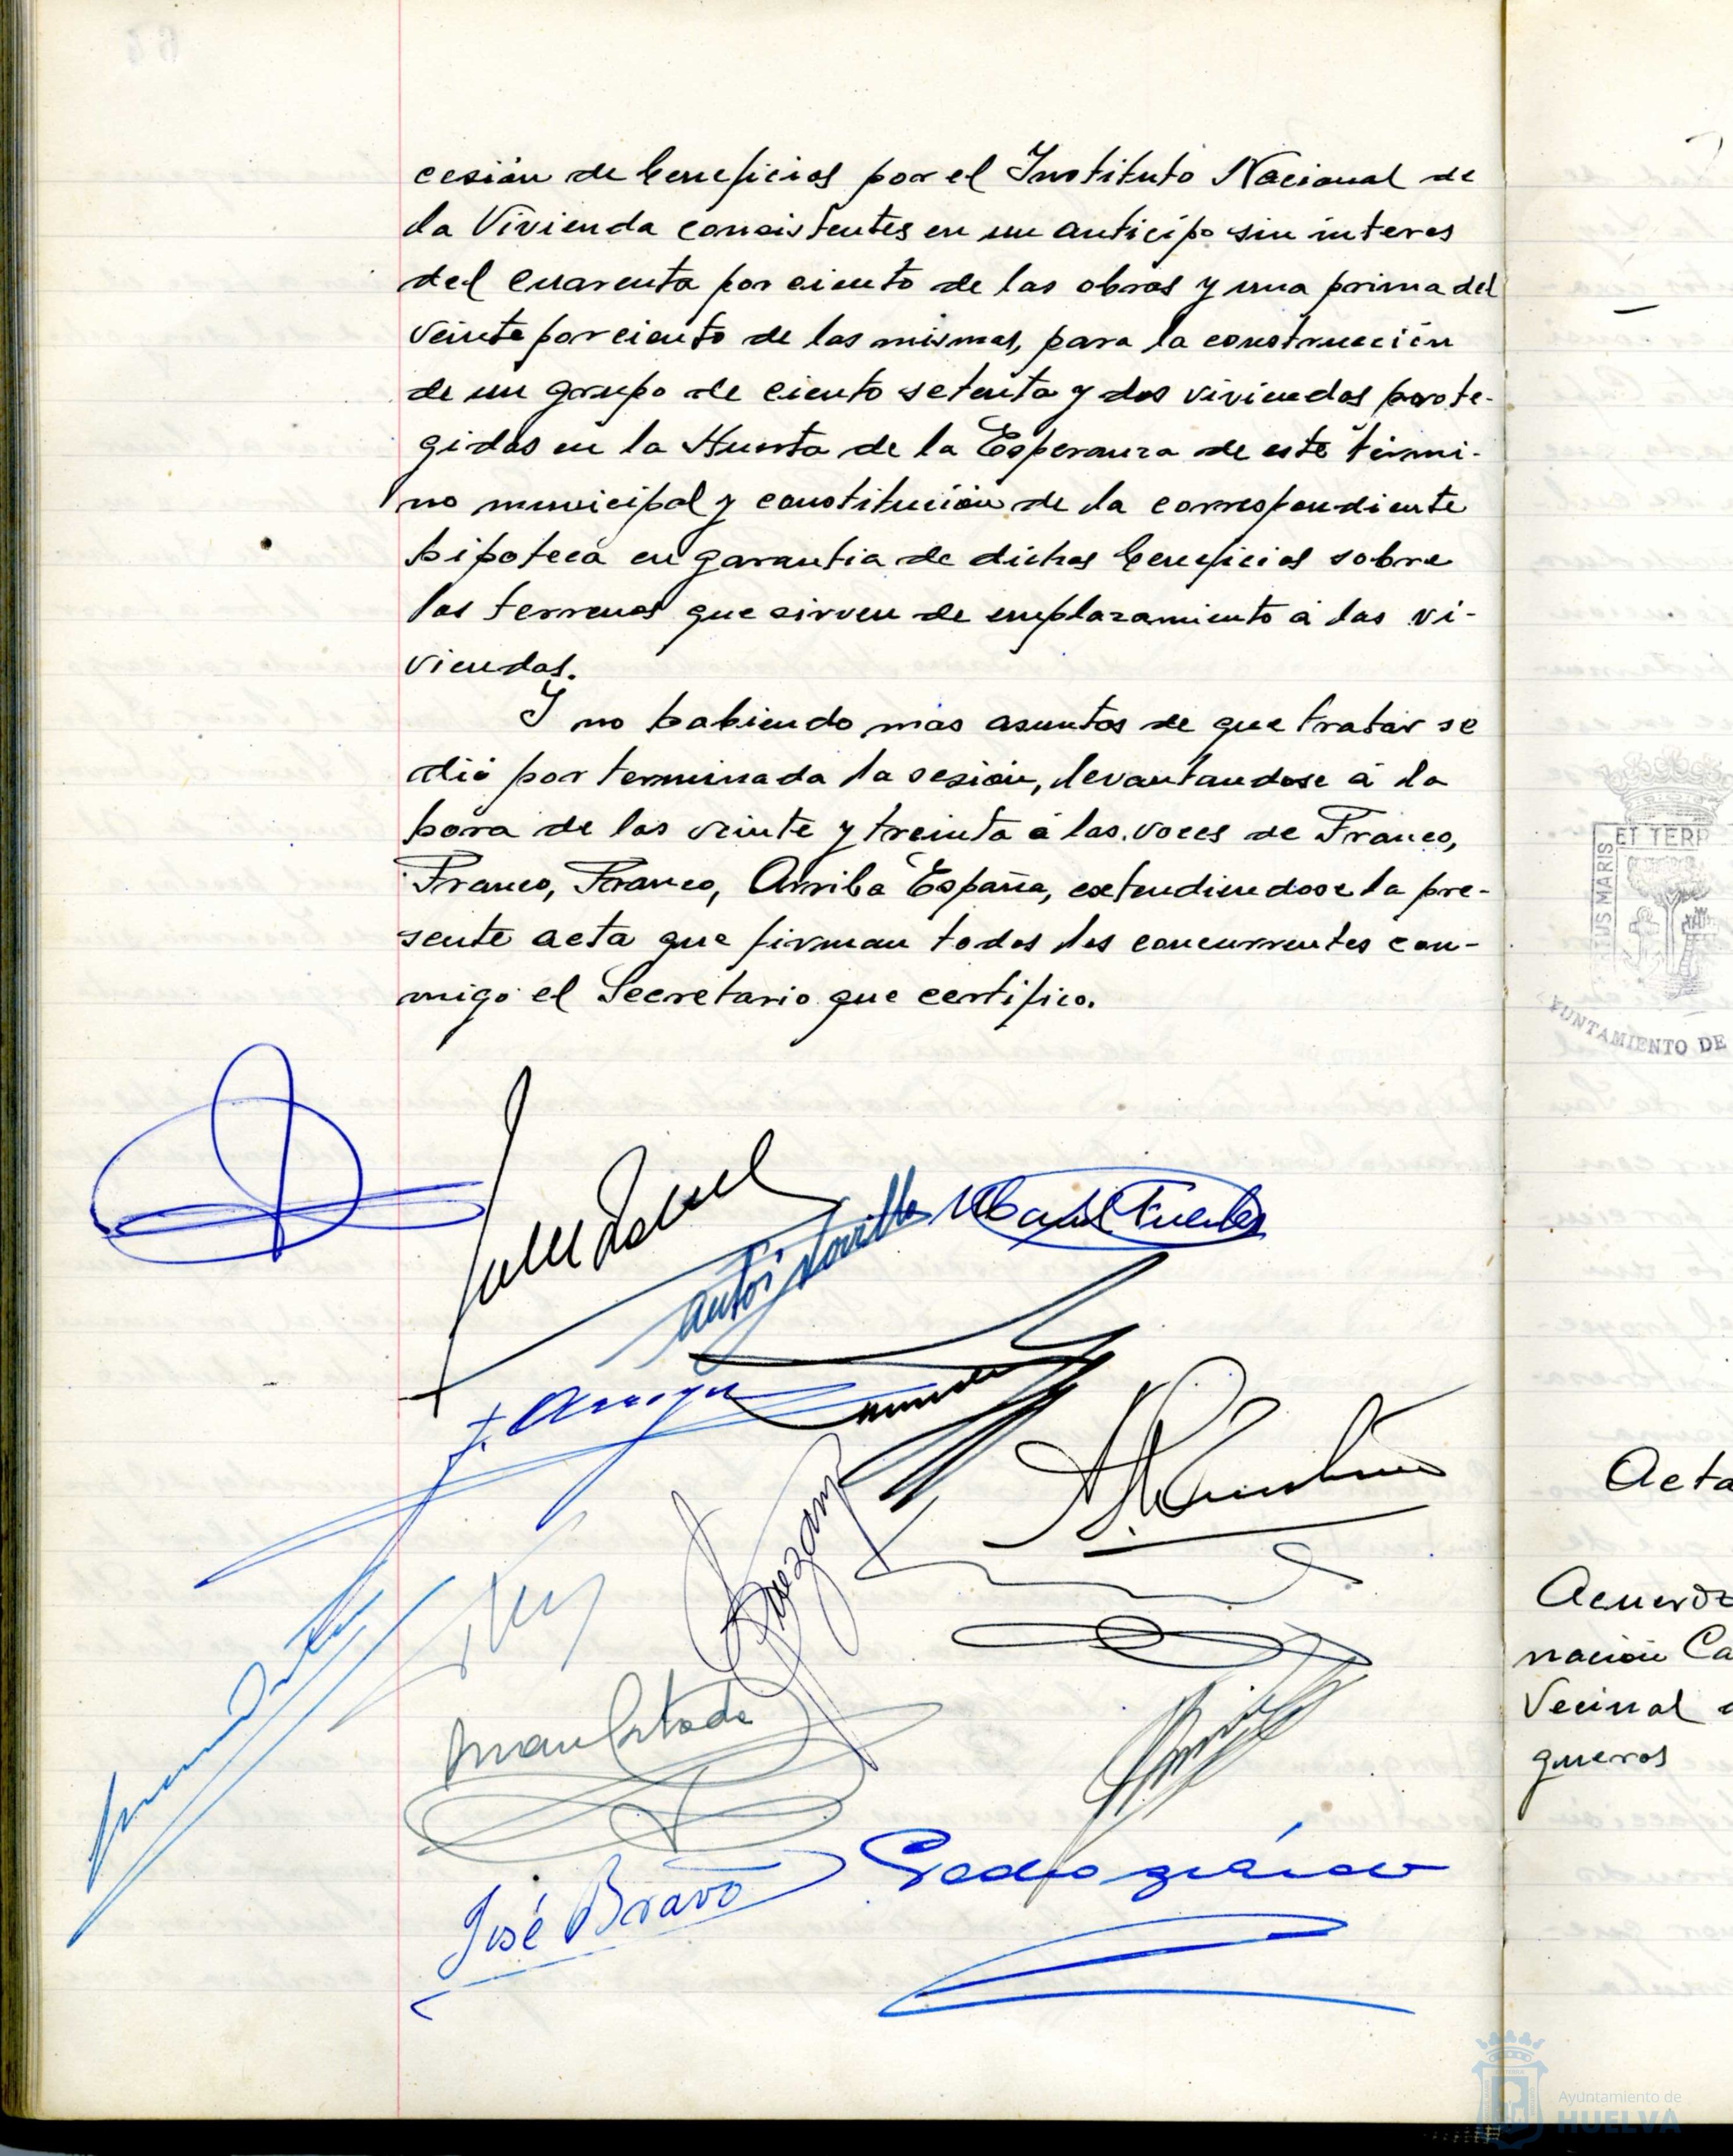 cesión de beneficios por el Instituto Nacional de
la Vivienda consistentes en un anticipo sin interes
del cuarenta por ciento de las obras y una prima del
veinte por ciento de las mismas, para la construcción
de un grupo de ciento setenta y dos viviendas prote-
gidas en la Huerta de la Esperanza de este térmi-
no municipal y constitución de la correspondiente
hipoteca en garantia de dichos beneficios sobre
los terrenos que sirven de emplazamiento á las vi-
viendas.
Y no habiendo mas asuntos de que tratar se
dió por terminada la sesión, levantandose á la
hora de las veinte y treinta á las voces de Franco,
Franco, Franco, Arriba España, extendiendose la pre-
sente acta que firman todos los concurrentes con-
migo el Secretario que certifico.
José Bravo
ET TERR
US MARIS
AYUNTAMIENTO DE
Acta
Acuerdo
nación Ca
Vecinal
gueros
Ayuntamiento de
HUELVA